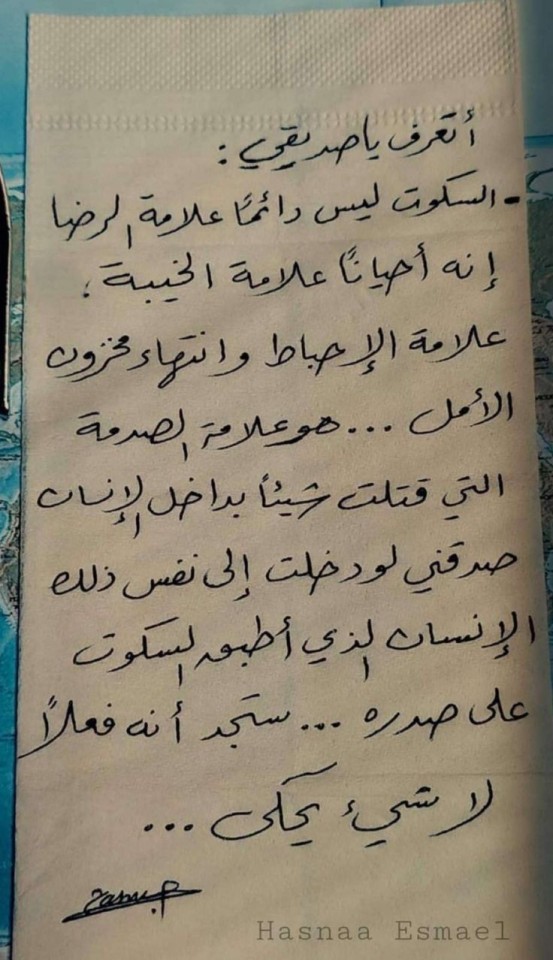 أتعرف يا صديقي :
- السكوت ليس دائمًا علامة الرضا
إنه أحيانًا علامة الخيبة ،
علامة الإحباط وانتهاء مخزون
الأمل ... هو علامة الصدمة
التي قتلت شيئاً بداخل الإنسان
صدقني لو دخلت إلى نفس ذلك
الإنسان الذي أطبق السكوت
على صدره ... ستجد أنه فعلاً
لا شيء يحكى ...
Hasnaa Esmael